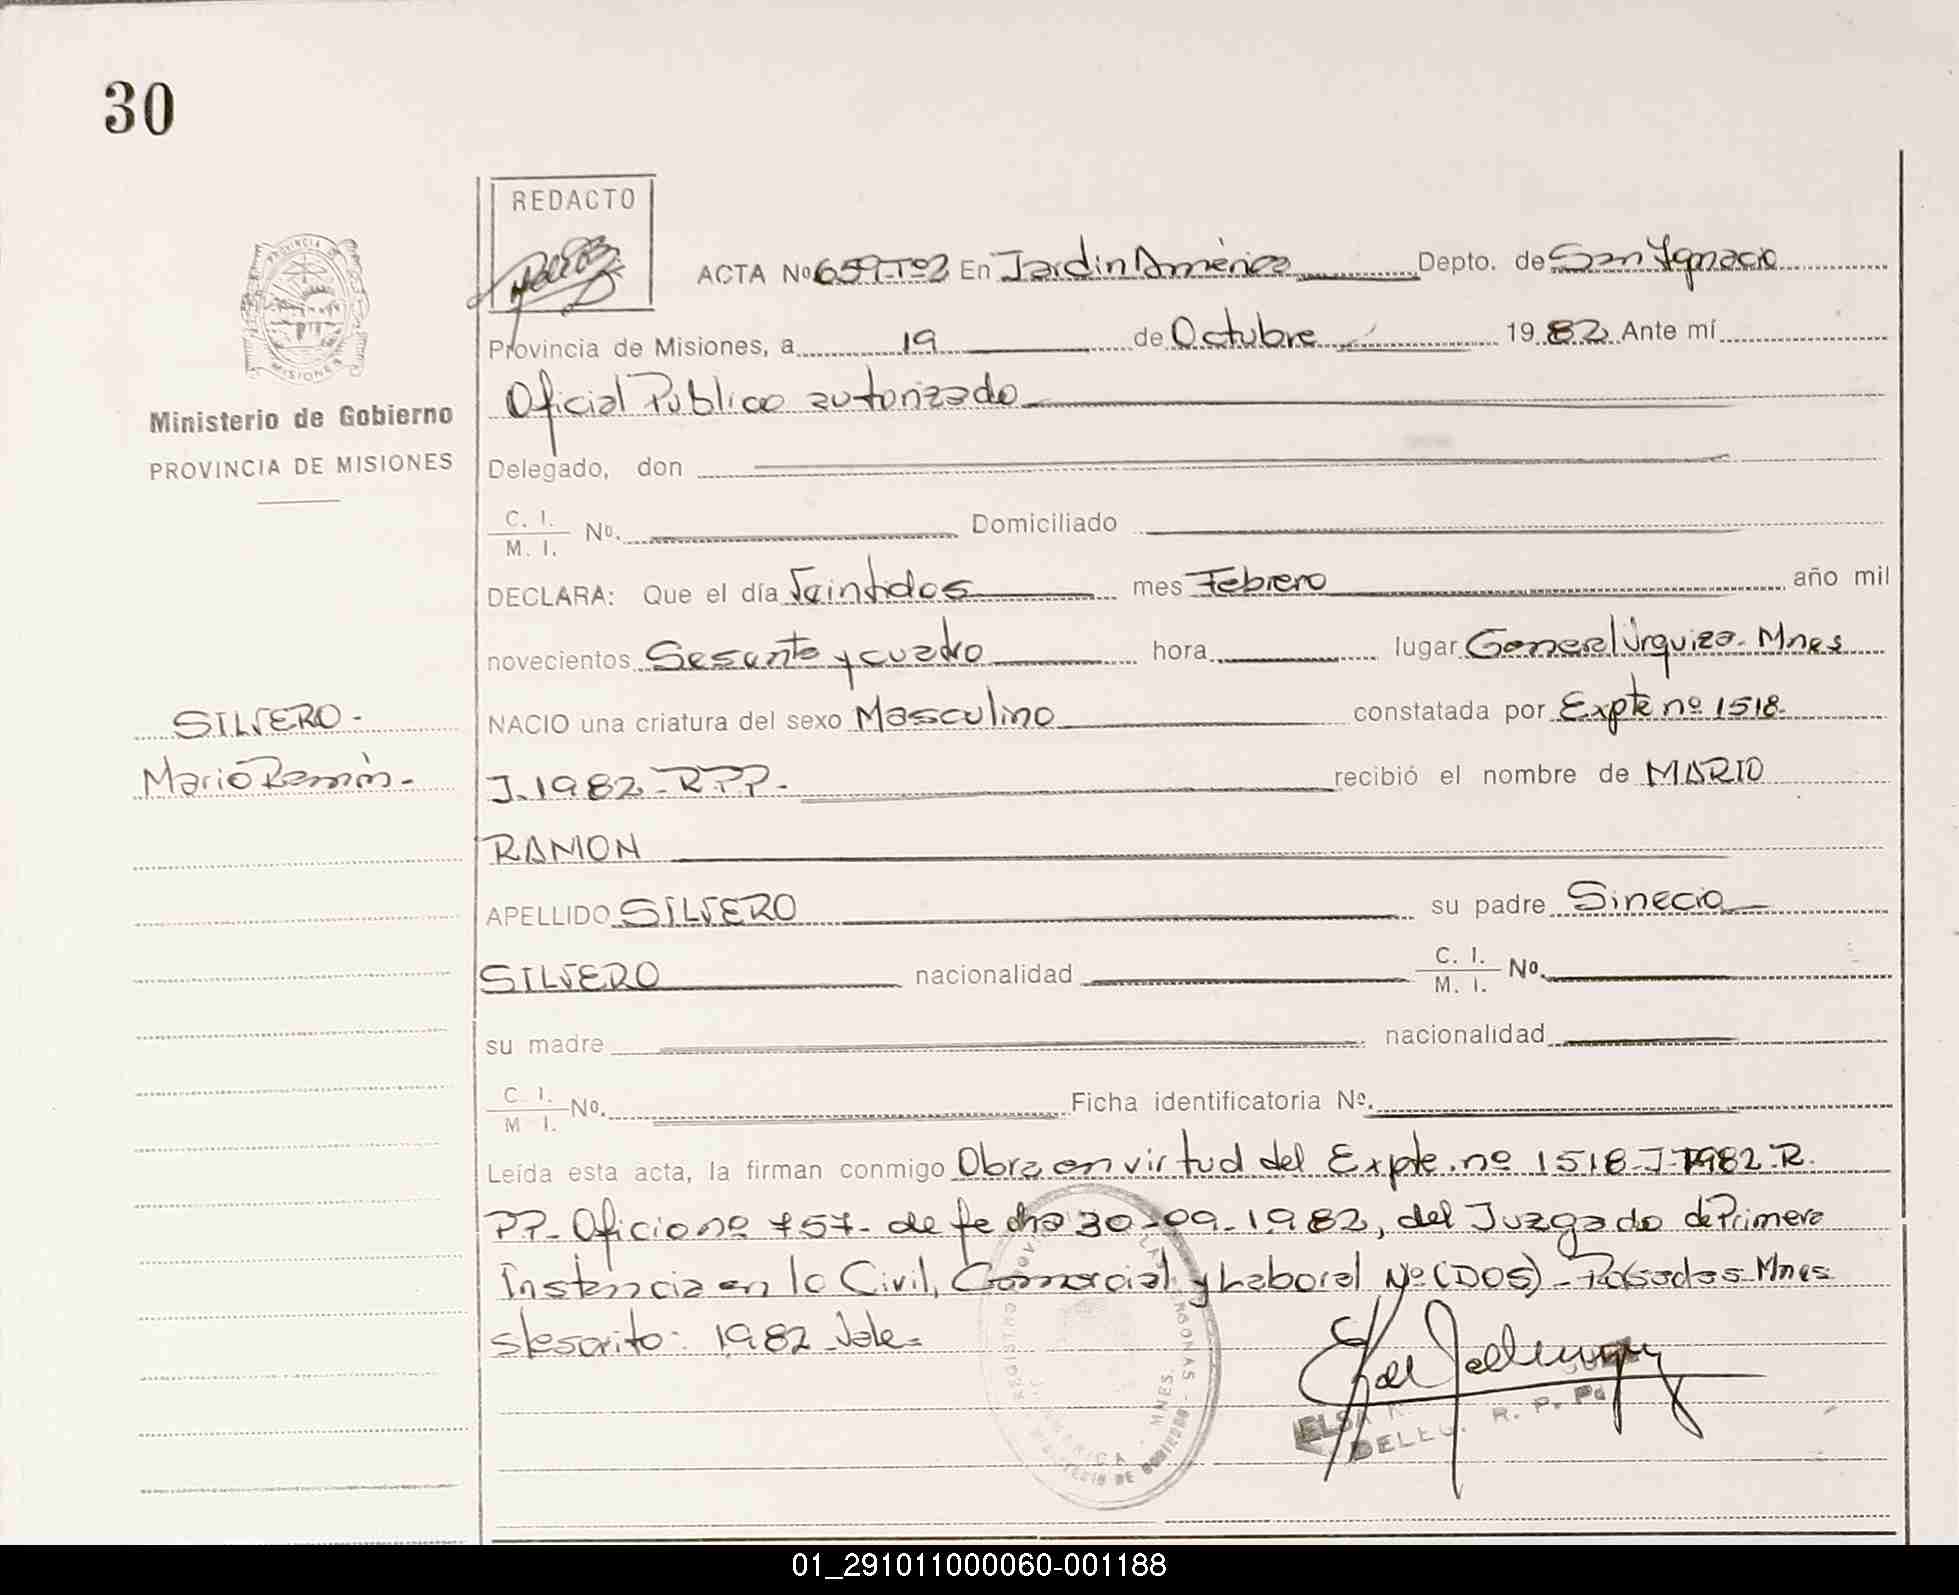 30
REDACTO
PROVINCIA DE
MISIONES
ACTA Nº 659-Tº2 En Jardin América Depto. de San Ignacio
Provincia de Misiones, a 19 de Octubre 19 82 Ante mí
Oficial Publico autorizado
Ministerio de Gobierno
PROVINCIA DE MISIONES
Delegado, don
C. I.
M. I. Nº. Domiciliado
DECLARA: Que el día Veintidos mes Febrero año mil
novecientos Sesenta y cuatro hora lugar General Urquiza- Mnes
SILVERO-
NACIO una criatura del sexo Masculino constatada por Expte nº 1518-
Mario Ramón-
J-1982-R.P.P.- recibió el nombre de MARIO
RAMON
APELLIDO SILVERO su padre Sinecio
SILVERO nacionalidad C. I.
M. I. Nº.
su madre nacionalidad
C. I.
M. I. Nº. Ficha identificatoria Nº.
Leída esta acta, la firman conmigo Obra en virtud del Expte. nº 1518-J-1982-R.
P.P- Oficio nº 757- de fecha 30-09-1982, del Juzgado de Primera
Instancia en lo Civil, Comercial y Laboral Nº (DOS)- Posadas- Mnes
s/escrito: 1982-Vale=
ELSA
DELEG. R. P. P.
01_291011000060-001188